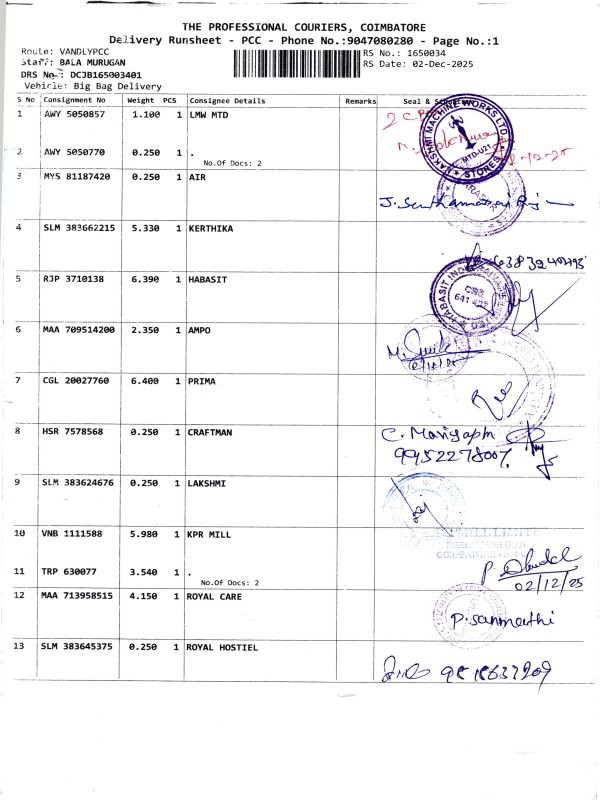 THE PROFESSIONAL COURIERS, COIMBATORE
Delivery Runsheet - PCC - Phone No.:9047080280 - Page No.:1
Route: VANDLYPCC
RS No.: 1650034
Staff: BALA MURUGAN
RS Date: 02-Dec-2025
DRS No.: DCJB165003401
Vehicle: Big Bag Delivery
S No Consignment No Weight PCS Consignee Details Remarks Seal &
1 AWY 5050857 1.100 1 LMW MTD
LAKSHMI MACHINE WORKS LTD
MTD-U21
STORES
2 AWY 5050770 0.250 1 .
No.Of Docs: 2
3 MYS 81187420 0.250 1 AIR
4 SLM 383662215 5.330 1 KERTHIKA
5 RJP 3710138 6.390 1 HABASIT
HABASIT
641
6 MAA 709514200 2.350 1 AMPO
7 CGL 20027760 6.400 1 PRIMA
8 HSR 7578568 0.250 1 CRAFTMAN
C. Mariyaph
9952278007.
9 SLM 383624676 0.250 1 LAKSHMI
10 VNB 1111588 5.980 1 KPR MILL
MILL LIMITED
COIMBATORE
11 TRP 630077 3.540 1 .
No.Of Docs: 2
02/12/25
12 MAA 713958515 4.150 1 ROYAL CARE
P. Sanmathi
13 SLM 383645375 0.250 1 ROYAL HOSTIEL